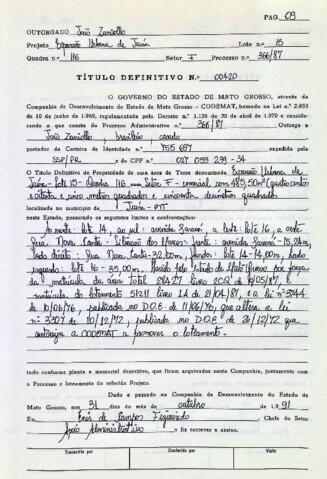 PAG. 09
OUTORGADO João Zaniollo
Projeto Expansão Urbana de Juína Lote n.º 15
Quadra n.º 116 Setor F Processo n.º 366/87
TÍTULO DEFINITIVO N.º 00420
O GOVERNO DO ESTADO DE MATO GROSSO, através da
Companhia de Desenvolvimento do Estado de Mato Grosso - CODEMAT, baseado na Lei n.º 2.933
de 10 de junho de 1.969, regulamentada pelo Decreto n.º 1.138 de 30 de abril de 1970 e conside-
rando o que consta do Processo Administrativo n.º 366/87 Outorga a
João Zaniollo, brasileiro casado
portador da Carteira de Identidade n.º 755 687 expedida pela
SSP/PR e do CPF n.º 027 053 239-34
O Título Definitivo de Propriedade de sua área de Terra denominada Expansão Urbana de
Juína - Lote 15 - Quadra 116 - Setor F - comercial, com 485,50m² (quatrocentos
e oitenta e cinco metros quadrados e cincoenta decímetros quadrados
localizada no município Juína - MT
neste Estado, possuindo os seguintes limites e confrontações:
Ao norte: lote 14, ao sul: avenida Jaraná, a leste: lote 16, a oeste
Rua Nova Cantu. Frente: avenida 15,24m,
lado direito: Rua Nova Cantu - 32,00m, fundo: lote 14 - 14,00m, lado
esquerdo: lote 16 - 35,00m. Havido pelo Estado de Mato Grosso por força
da matrícula da área total 28427 livro 2CS 19/05/87, e
matrícula do loteamento 51211 livro 1A de 21/04/87, e a lei n.º 3744
de 10/06/76, publicada no D.O.E. de 11/06/76, que altera a lei
n.º 3307 de 10/12/72, publicada no D.O.E. de 26/12/72 que
autoriza a CODEMAT a promover o loteamento.
tudo conforme planta e memorial descritivo, que ficam arquivados nesta Companhia, juntamente com
o Processo e loteamento do referido Projeto.
Dado e passado na Companhia de Desenvolvimento do Estado de
Mato Grosso, aos 31 dias do mês de outubro de 1.991
Eu, Enir de Campos Figueiredo Chefe do Setor
Apoio Administrativo o fiz escrever e assino.
Transcrito por Conferido por Visto